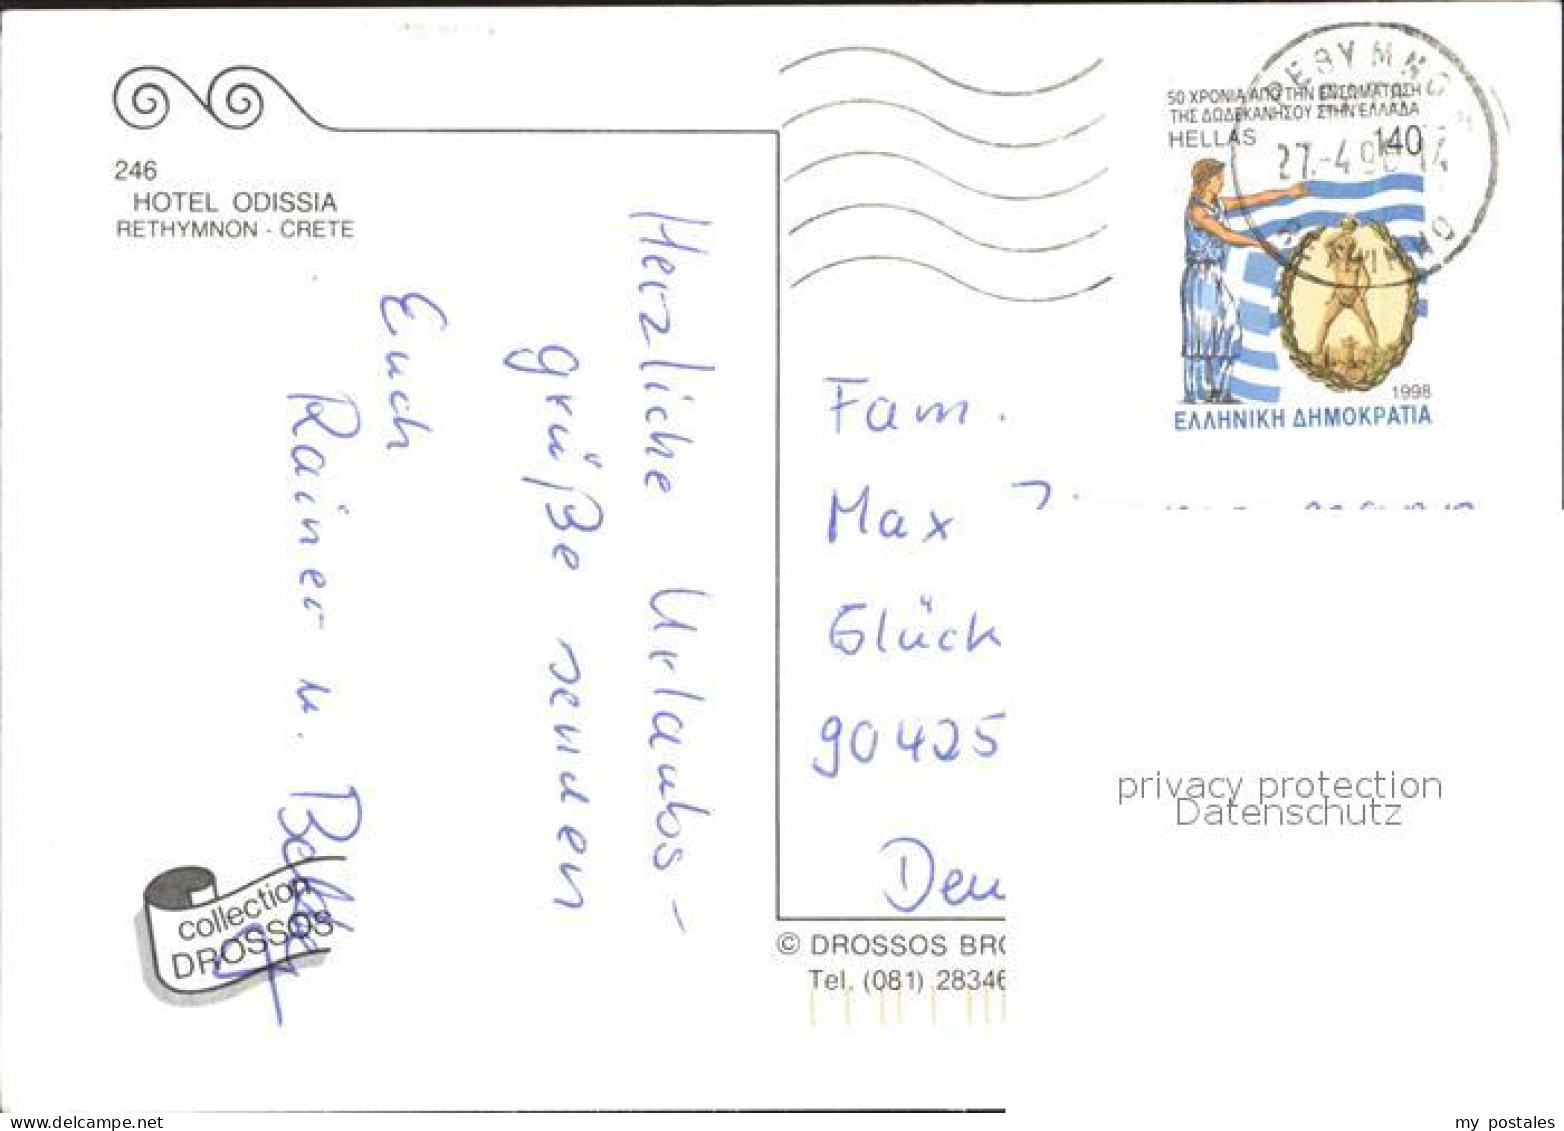 246
HOTEL ODISSIA
RETHYMNON - CRETE
Herzliche Urlaubs-
grüße senden
Euch
Rainer u.
collection
DROSSOS
50 ΧΡΟΝΙΑ ΑΠΟ ΤΗΝ ΕΝΣΩΜΑΤΩΣΗ
ΤΗΣ ΔΩΔΕΚΑΝΗΣΟΥ ΣΤΗΝ ΕΛΛΑΔΑ
HELLAS
140
1998
ΕΛΛΗΝΙΚΗ ΔΗΜΟΚΡΑΤΙΑ
ΡΕΘΥΜΝΟ
27.-4.98 14
Fam.
Max
Glück
90425
Deu
© DROSSOS BRO
Tel. (081) 28346
privacy protection
Datenschutz
delcampe.net
my postales